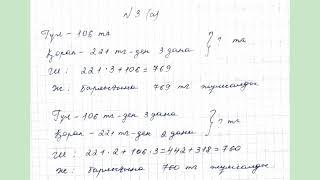 №3 (а)
Гүл – 106 тг
Қорап – 221 тг-ден 3 дана } ? тг
Ш: 221 · 3 + 106 = 769
Ж: Барлығына 769 тг жұмсалды
Гүл – 106 тг-ден 3 дана
Қорап – 221 тг-ден 2 дана } ? тг
Ш: 221 · 2 + 106 · 3 = 442 + 318 = 760
Ж: Барлығына 760 тг жұмсалды